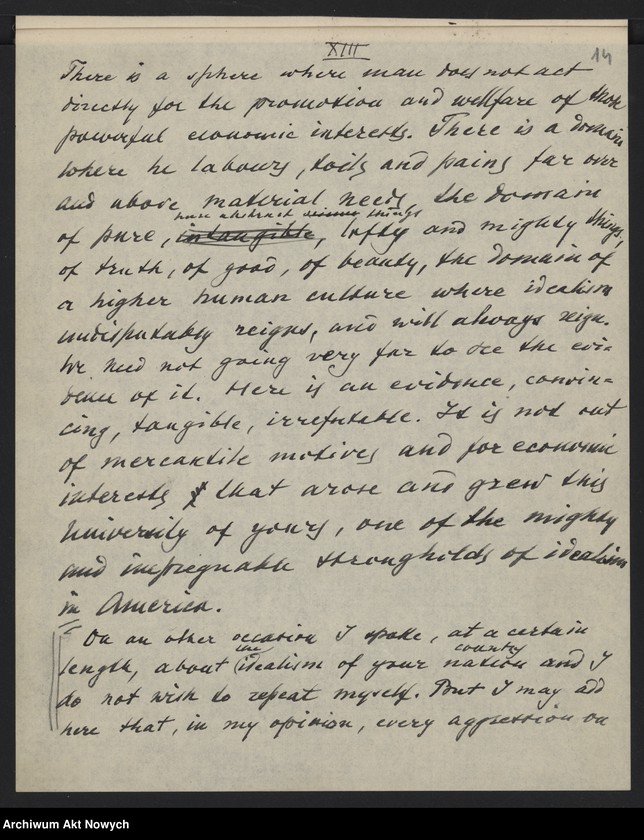 XIII
14
There is a sphere where man does not act
directly for the promotion and wellfare of more
powerful economic interests. There is a domain
where he labours, toils and pains far over
and above material needs, the domain
more abstract things
of pure, intangible, lofty and mighty things,
of truth, of good, of beauty, the domain of
a higher human culture where idealism
undisputably reigns, and will always reign.
We need not going very far to see the evi-
dence of it. Here is an evidence, convin-
cing, tangible, irrefutable. It is not out
of mercantile motives and for economic
interests that arose and grew this
University of yours, one of the mighty
and impregnable strongholds of idealism
in America.
On an other occasion I spoke, at a certain
the country
length, about idealism of your nation and I
do not wish to repeat myself. But I may add
here that, in my opinion, every aggression on
Archiwum Akt Nowych